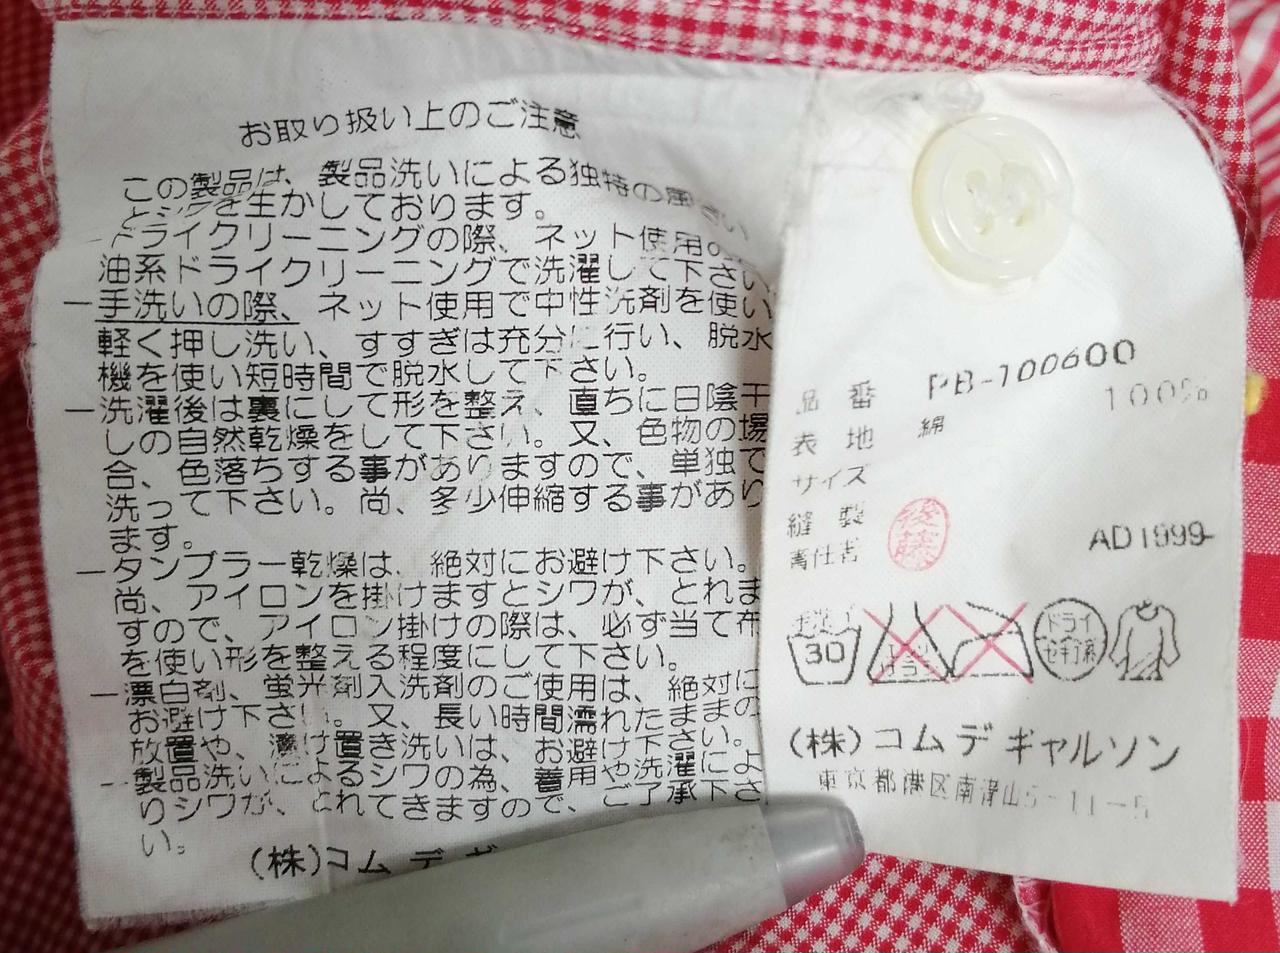 お取り扱い上のご注意
この製品は、製品洗いによる独特の風合い
とシワを生かしております。
ードライクリーニングの際、ネット使用の、
油系ドライクリーニングで洗濯して下さい
ー手洗いの際、ネット使用で中性洗剤を使い
軽く押し洗い、すすぎは充分に行い、脱水
機を使い短時間で脱水して下さい。
ー洗濯後は裏にして形を整え、直ちに日陰干
しの自然乾燥をして下さい。又、色物の場
合、色落ちする事がありますので、単独で
洗って下さい。尚、多少伸縮する事があり
ます。
ータンブラー乾燥は、絶対にお避け下さい。
尚、アイロンを掛けますとシワが、とれま
すので、アイロン掛けの際は、必ず当て布
を使い形を整える程度にして下さい。
ー漂白剤、蛍光剤入洗剤のご使用は、絶対に
お避け下さい。又、長い時間濡れたままの
放置や、漬け置き洗いは、お避け下さい。
ー製品洗いによるシワの為、着用や洗濯によ
りシワが、とれてきますので、ご了承下さ
い。
(株)コム デ ギ
品番 PB-100600
表地 綿 100%
サイズ
縫製
責任者
後藤
AD1999
手洗イ
30
エンソサラシ
ドライ
セキユ系
(株)コム デ ギャルソン
東京都港区南青山5-11-5